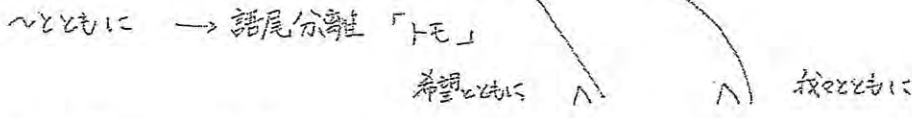 ～とともに → 語尾分離 「トモ」
希望とともに 我々とともに